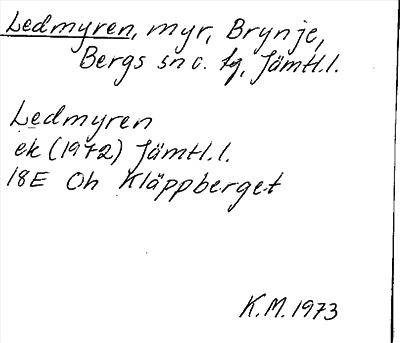 Ledmyren, myr, Brynje,
Bergs sn o. tg, Jämtl.l.
Ledmyren
ek (1972) Jämtl.l.
18E Oh Kläppberget
K.M. 1973